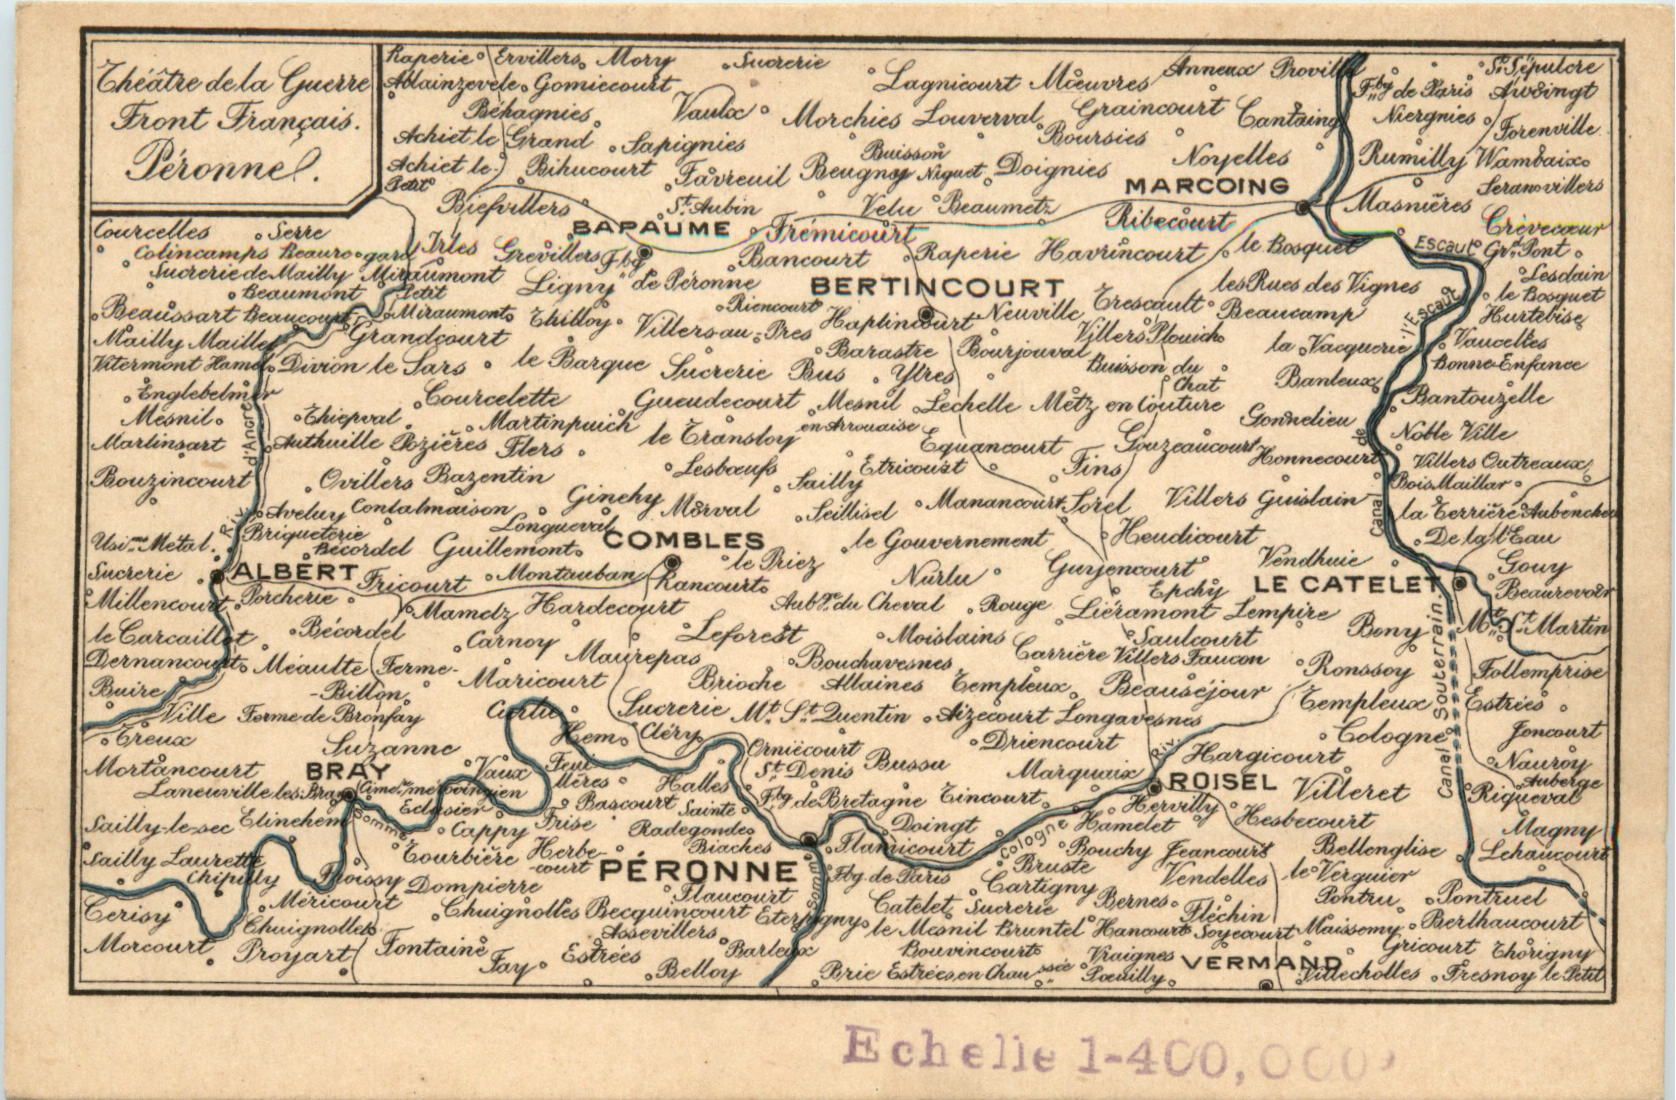 Théâtre de la Guerre
Front Français.
Péronne.
Raperie Ervillers Mory Sucrerie
Lagnicourt Mœuvres Anneux Proville St. Sépulcre
Ablainzevele Gomiecourt Fbg de Paris Awoingt
Béhagnies Vaulx Morchies Louverval Graincourt Cantaing Niergnies Forenville
Achiet le Grand Sapignies Boursies
Achiet le Petit Bihucourt Favreuil Beugny Buisson Niguet Doignies Noyelles Rumilly Wambaix
Seranvillers
Biefvillers St. Aubin Velu Beaumetz MARCOING Masnières
Ribecourt Crèvecœur
Courcelles Serre
BAPAUME Frémicourt
Colincamps Beauregard Irles Grévillers Fbg de Péronne Bancourt Raperie Havrincourt le Bosquet Escaut Gr. Pont
Sucrerie de Mailly Miraumont Ligny BERTINCOURT les Rues des Vignes Lesdain
Beaumont Petit Miraumont le Bosquet
Beaussart Beaucourt Thilloy Riencourt Haplincourt Neuville Trescault Beaucamp l'Escaut Hurtebise
Mailly Maillet Grandcourt Villers au Pres Villers Plouich la Vacquerie Vaucelles
Vitermont Hamel Divion le Sars le Barque Sucrerie Barastre Bourjouval Bonne Enfance
Bus Ytres Buisson du Chat Banteux
Englebelmer Courcelette Gueudecourt Mesnil en Arrouaise Lechelle Metz en Couture Bantouzelle
Mesnil Thiepval Martinpuich Gonnelieu
Martinsart d'Ancre Authuille Pozières Flers le Transloy Equancourt Gouzeaucourt Honnecourt Noble Ville
Bouzincourt Ovillers Bazentin Lesbœufs Sailly Etricourt Fins Villers Outreaux
Bois Maillar
Aveluy Contalmaison Ginchy Morval Saillisel Manancourt Sorel Villers Guislain la Terrière Aubencheu
Riv. Briqueterie Longueval
Usine Métal. Bécordel Guillemont COMBLES le Gouvernement Heudicourt De la l'Eau
Sucrerie ALBERT Fricourt Montauban le Priez Nurlu Guyencourt Vendhuie LE CATELET Gouy
Millencourt Porcherie Mametz Hardecourt Rancourt Aubge. du Cheval Rouge Epehy Beaurevoir
Liéramont Lempire
le Carcaillot Bécordel Carnoy Leforest Moislains Saulcourt Bony Mt. St. Martin
Dernancourt Méaulte Ferme-Billon Maurepas Bouchavesnes Carrière Villers Faucon Ronssoy Follemprise
Buire Maricourt Brioche Allaines Templeux Beauséjour Templeux Estrées
Ville Ferme de Bronfay Curlu Sucrerie Mt. St. Quentin Aizecourt Longavesnes
Treux Suzanne Hem Cléry Orniécourt Driencourt Riv. Cologne Canal Souterrain Joncourt
Mortancourt BRAY Vaux Feuillères Halles St. Denis Bussu Marquaix Hargicourt Nauroy
Laneuville les Bray Cimet. mérovingien ROISEL Villeret Auberge Riqueval
Eclusier Frise Bascourt Sainte Radegonde Fbg de Bretagne Tincourt Hervilly
Sailly-le-sec Etinehem Somme Cappy Doingt Cologne Hamelet Hesbecourt Magny
Sailly Laurette Tourbière Herbecourt Biaches Flamicourt Bouchy Jeancourt Bellenglise Lehaucourt
Chipilly Froissy Dompierre PÉRONNE Fbg de Paris Bruste Vendelles le Verguier
Cerisy Méricourt Flaucourt Somme Cartigny Bernes Pontru Pontruel
Chuignolles Becquincourt Eterpigny Catelet Sucrerie Fléchin
Chuignolles Assevillers le Mesnil Bruntel Hancourt Soyecourt Maissemy Berthaucourt
Morcourt Proyart Fontaine Estrées Barleux Bouvincourt Vraignes Gricourt Thorigny
Fay Belloy Brie Estrées en Chaussée Pœuilly VERMAND Villecholles Fresnoy le Petit
Canal de
Echelle 1-400,000